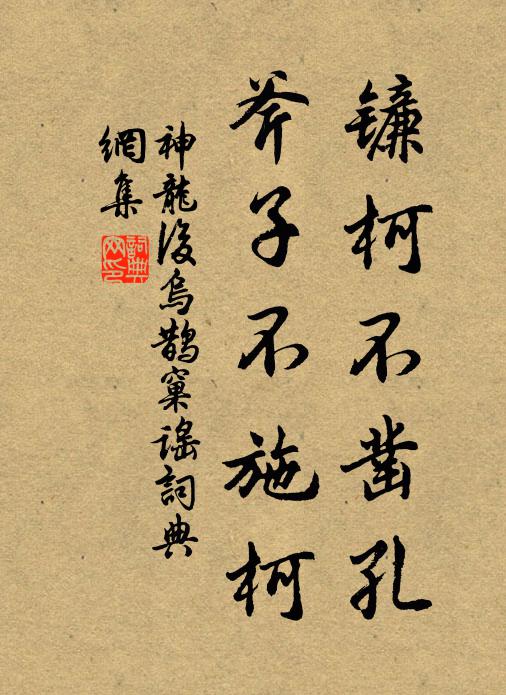 镰柯不凿孔
斧子不施柯
神龍後烏鵲窠謠詞典
網集
詞典
网印